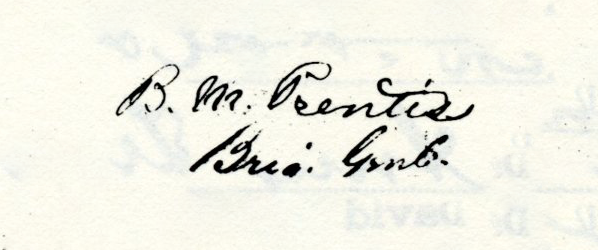 B. M. Prentiss
Brig. Genl.